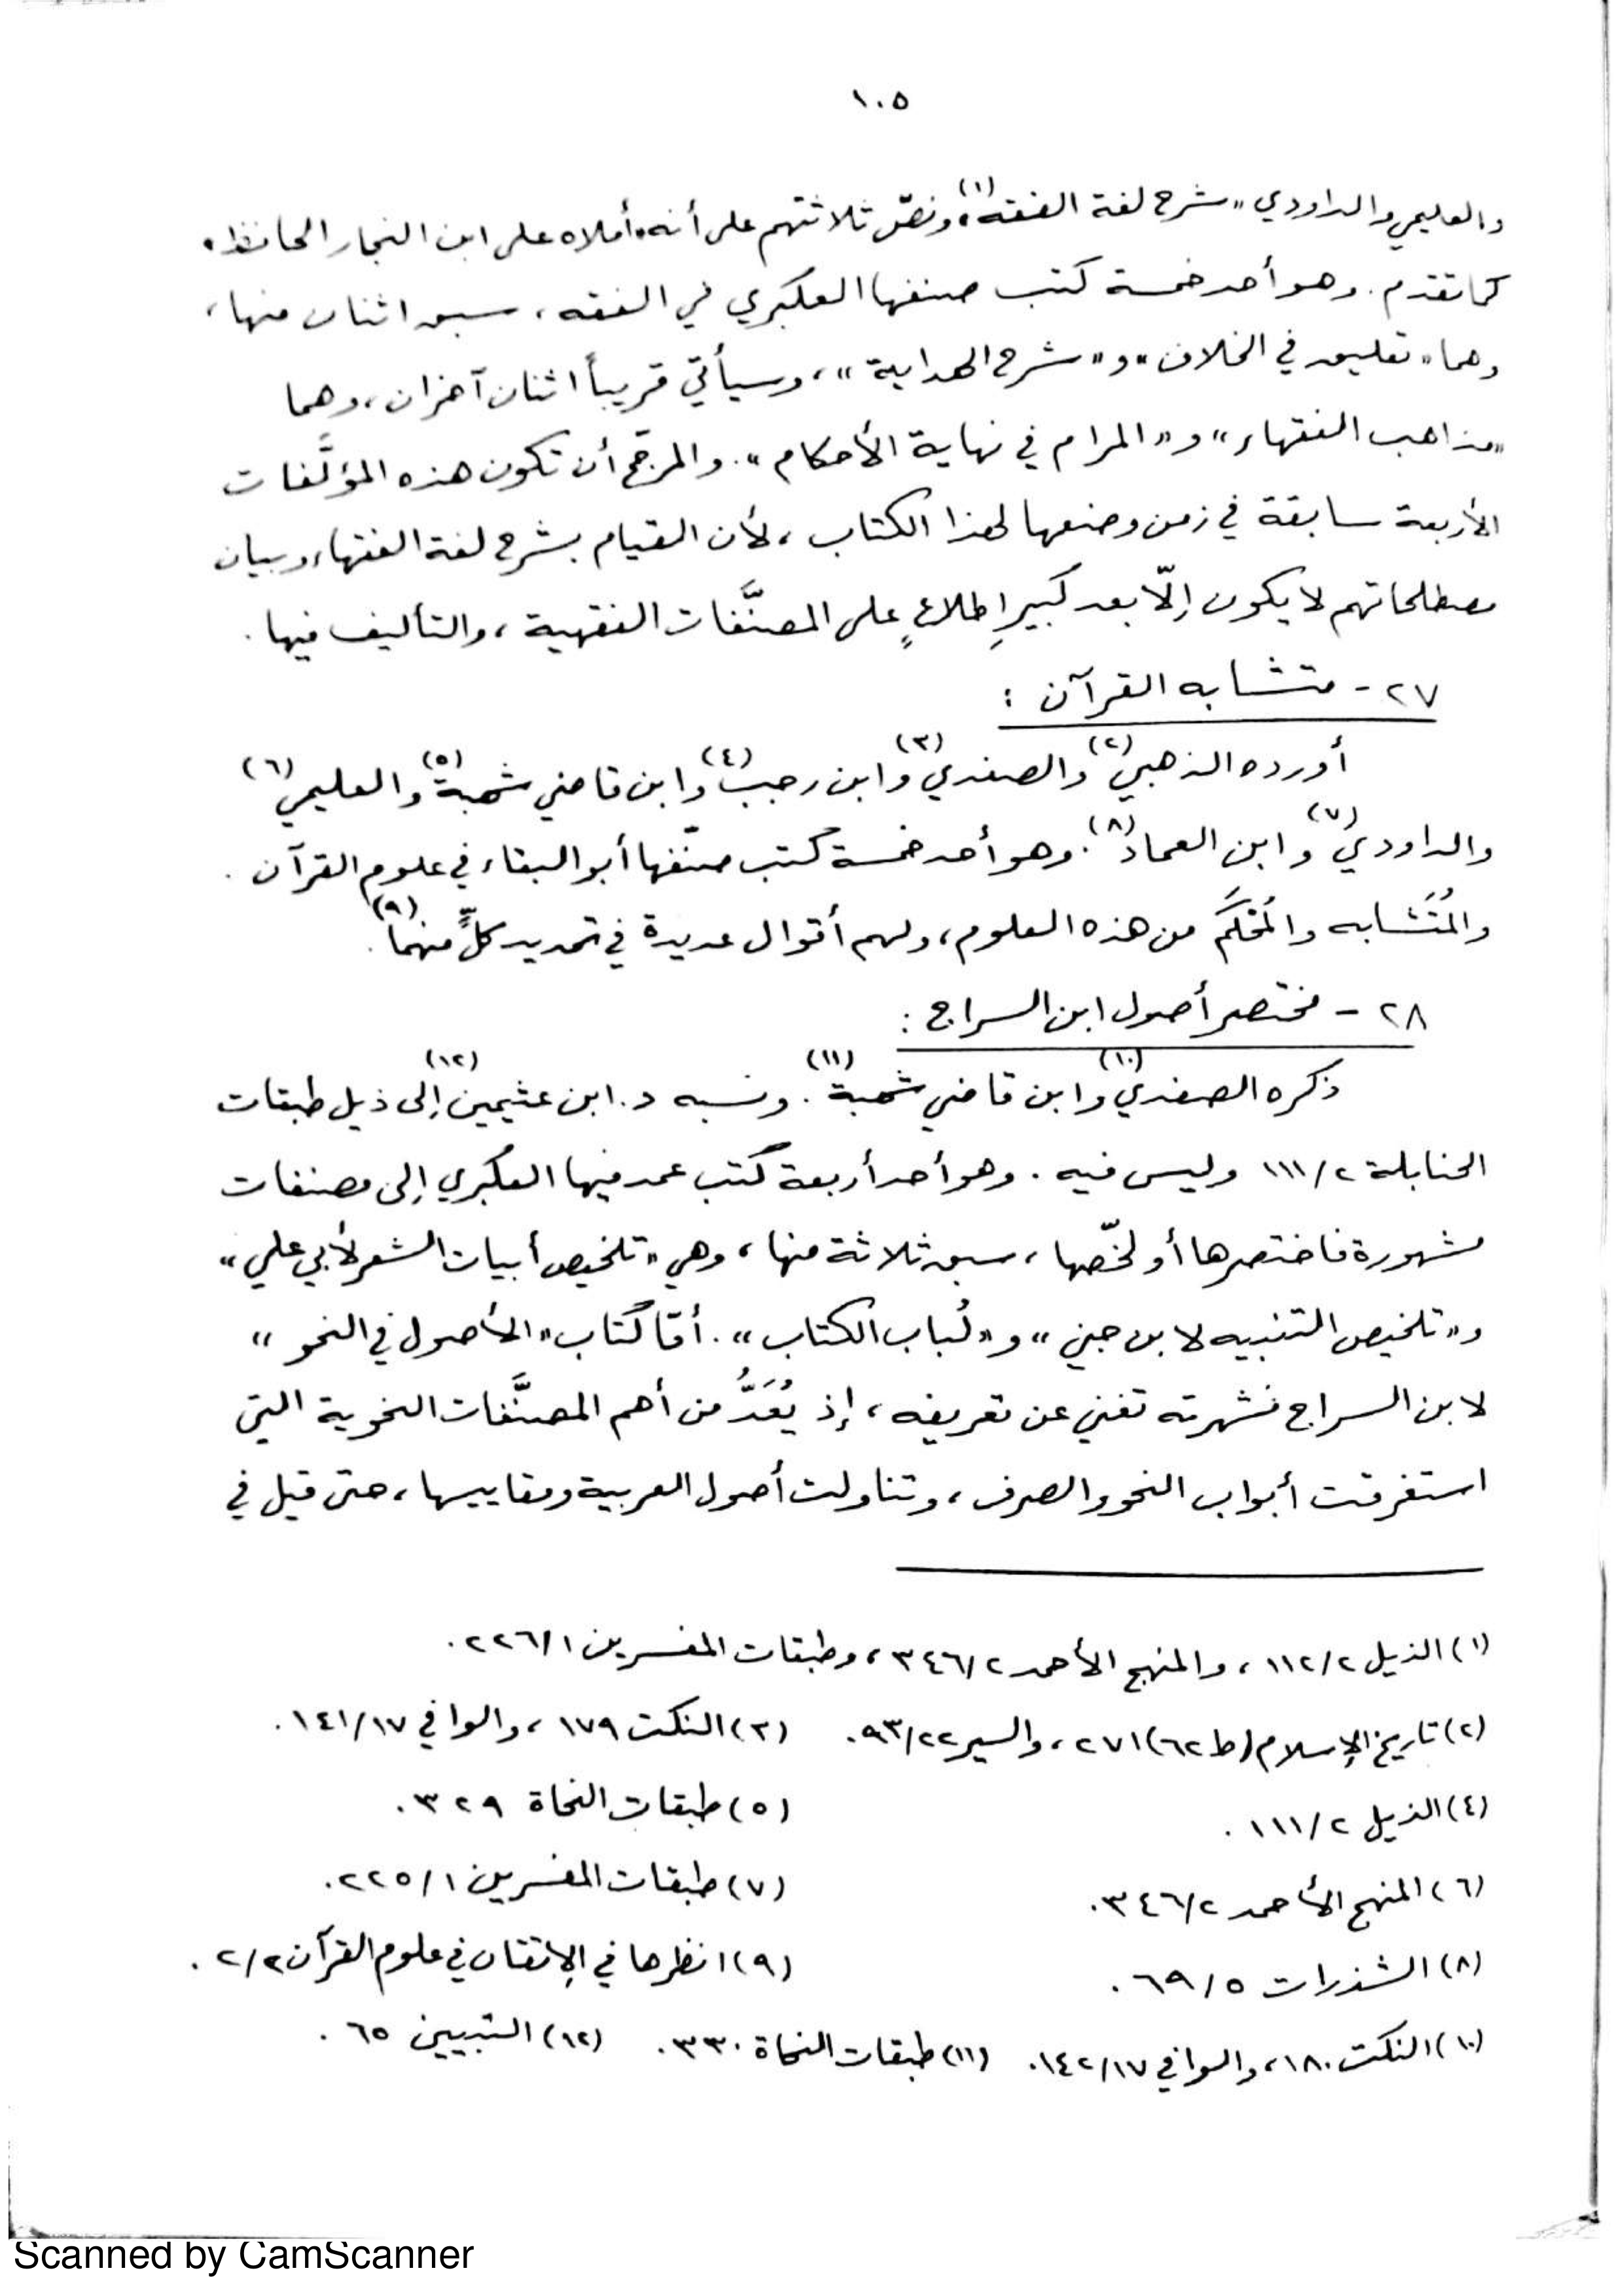 ١٠٥
والعليمي والداودي «شرح لغة الفقه»(١)، ونصّ ثلاثتهم على أنه أملاه على ابن النجار الحافظ،
كما تقدم. وهو أحد خمسة كتب صنفها العكبري في الفقه، سبق اثنان منها،
وهما «تعليق في الخلاف» و«شرح الهداية»، وسيأتي قريباً اثنان آخران، وهما
«مذاهب الفقهاء» و«المرام في نهاية الأحكام». والمرجّح أن تكون هذه المؤلَّفات
الأربعة سابقة في زمن وضعها لهذا الكتاب، لأن القيام بشرح لغة الفقهاء وبيان
مصطلحاتهم لا يكون إلّا بعد كبيرِ إطلاعٍ على المصنَّفات الفقهية، والتأليف فيها.
٢٧ - متشابه القرآن :
أورده الذهبي(٢) والصفدي(٣) وابن رجب(٤) وابن قاضي شهبة(٥) والعليمي(٦)
والداودي(٧) وابن العماد(٨). وهو أحد خمسة كتب صنّفها أبو البقاء في علوم القرآن.
والمُتَشَابه والمُحْكَم من هذه العلوم، ولهم أقوال عديدة في تحديد كلٍّ منهما(٩).
٢٨ - مختصر أصول ابن السراج :
ذكره الصفدي(١٠) وابن قاضي شهبة(١١). ونسبه د. ابن عثيمين(١٢) إلى ذيل طبقات
الحنابلة ١١١/٢ وليس فيه. وهو أحد أربعة كتب عمد فيها العكبري إلى مصنفات
مشهورة فاختصرها أو لخّصها، سبق ثلاثة منها، وهي «تلخيص أبيات الشعر لأبي علي»
و«تلخيص التنبيه لابن جني» و«لُباب الكتاب». أمّا كتاب «الأصول في النحو»
لابن السراج فشهرته تغني عن تعريفه، إذ يُعَدُّ من أهم المصنَّفات النحوية التي
استغرقت أبواب النحو والصرف، وتناولت أصول العربية ومقاييسها، حتى قيل في
(١) الذيل ١١٢/٢، والمنهج الأحمد ٣٤٦/٢، وطبقات المفسرين ٢٢٦/١.
(٢) تاريخ الإسلام (ط ٦٢) ٢٧١، والسير ٩٣/٢٢. (٣) النكت ١٧٩، والوافي ١٤١/١٧.
(٤) الذيل ١١١/٢. (٥) طبقات النحاة ٣٢٩.
(٦) المنهج الأحمد ٣٤٦/٢. (٧) طبقات المفسرين ٢٢٥/١.
(٨) الشذرات ٦٩/٥. (٩) انظرها في الإتقان في علوم القرآن ٢/٢.
(١٠) النكت ١٨٠، والوافي ١٤٢/١٧. (١١) طبقات النحاة ٣٣٠. (١٢) التبيين ٦٥.
Scanned by CamScanner